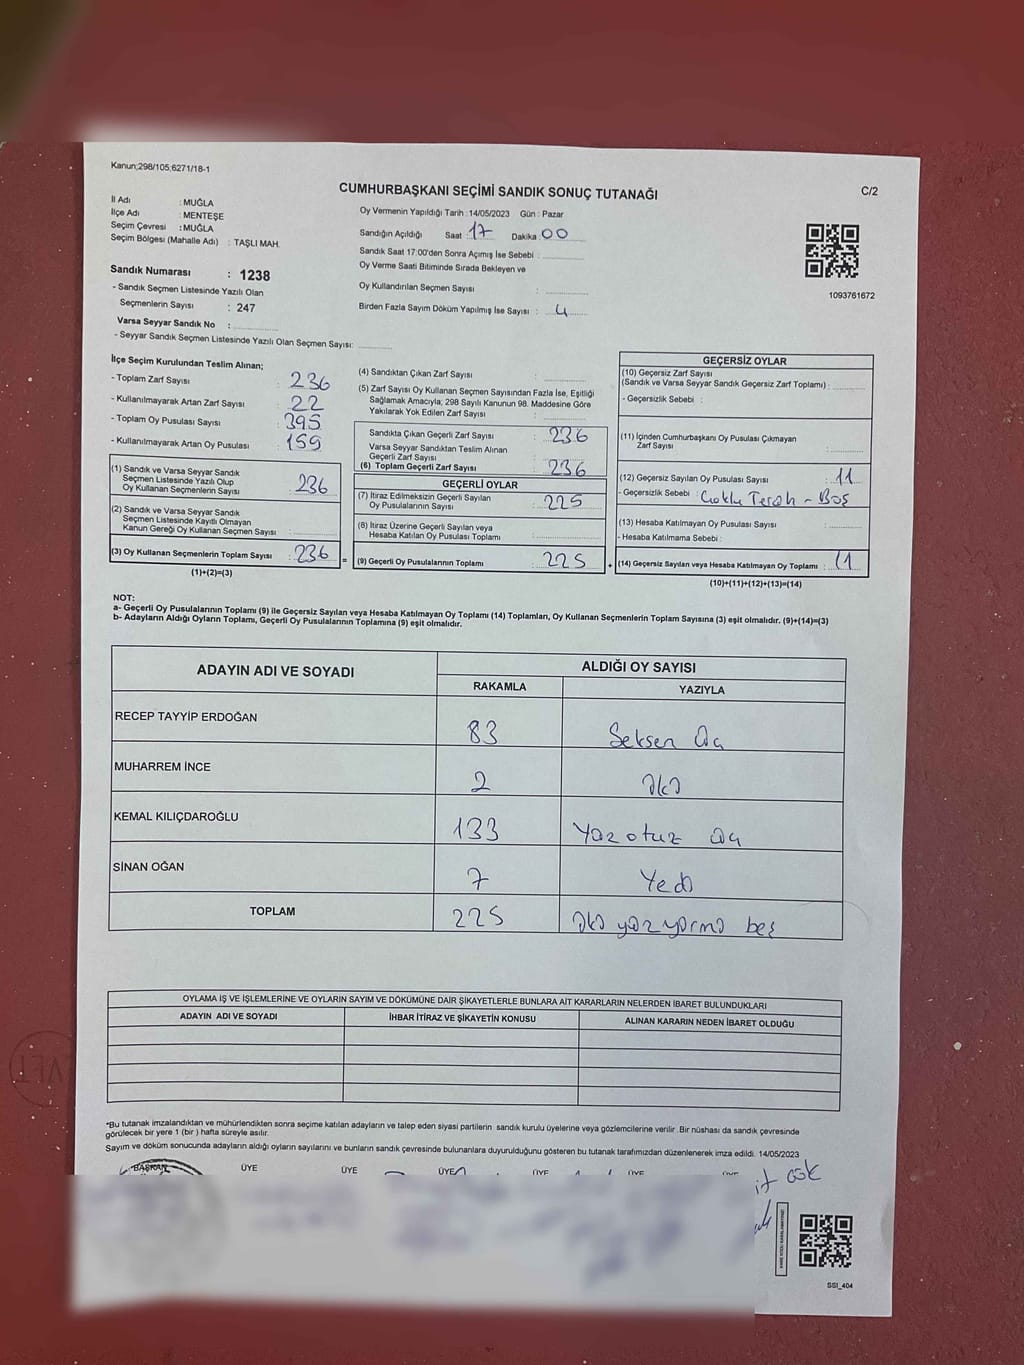 Kanun;298/105;6271/18-1
C/2
CUMHURBAŞKANI SEÇİMİ SANDIK SONUÇ TUTANAĞI
İl Adı : MUĞLA
İlçe Adı : MENTEŞE
Seçim Çevresi : MUĞLA
Seçim Bölgesi (Mahalle Adı) : TAŞLI MAH.
Sandık Numarası : 1238
- Sandık Seçmen Listesinde Yazılı Olan
Seçmenlerin Sayısı : 247
Varsa Seyyar Sandık No :
- Seyyar Sandık Seçmen Listesinde Yazılı Olan Seçmen Sayısı:
Oy Vermenin Yapıldığı Tarih : 14/05/2023 Gün : Pazar
Sandığın Açıldığı Saat 17 Dakika 00
Sandık Saat 17:00'den Sonra Açımış İse Sebebi :
Oy Verme Saati Bitiminde Sırada Bekleyen ve
Oy Kullandırılan Seçmen Sayısı :
Birden Fazla Sayım Döküm Yapılmış İse Sayısı : 4
1093761672
İlçe Seçim Kurulundan Teslim Alınan;
- Toplam Zarf Sayısı : 236
- Kullanılmayarak Artan Zarf Sayısı : 22
- Toplam Oy Pusulası Sayısı : 395
- Kullanılmayarak Artan Oy Pusulası : 159
(1) Sandık ve Varsa Seyyar Sandık
Seçmen Listesinde Yazılı Olup
Oy Kullanan Seçmenlerin Sayısı : 236
(2) Sandık ve Varsa Seyyar Sandık
Seçmen Listesinde Kayıtlı Olmayan
Kanun Gereği Oy Kullanan Seçmen Sayısı :
(3) Oy Kullanan Seçmenlerin Toplam Sayısı : 236 =
(1)+(2)=(3)
(4) Sandıktan Çıkan Zarf Sayısı :
(5) Zarf Sayısı Oy Kullanan Seçmen Sayısından Fazla İse, Eşitliği
Sağlamak Amacıyla; 298 Sayılı Kanunun 98. Maddesine Göre
Yakılarak Yok Edilen Zarf Sayısı :
Sandıkta Çıkan Geçerli Zarf Sayısı : 236
Varsa Seyyar Sandıktan Teslim Alınan
Geçerli Zarf Sayısı :
(6) Toplam Geçerli Zarf Sayısı : 236
GEÇERLİ OYLAR
(7) İtiraz Edilmeksizin Geçerli Sayılan
Oy Pusulalarının Sayısı : 225
(8) İtiraz Üzerine Geçerli Sayılan veya
Hesaba Katılan Oy Pusulası Toplamı :
(9) Geçerli Oy Pusulalarının Toplamı : 225 +
GEÇERSİZ OYLAR
(10) Geçersiz Zarf Sayısı
(Sandık ve Varsa Seyyar Sandık Geçersiz Zarf Toplamı) :
- Geçersizlik Sebebi :
(11) İçinden Cumhurbaşkanı Oy Pusulası Çıkmayan
Zarf Sayısı :
(12) Geçersiz Sayılan Oy Pusulası Sayısı : 11
- Geçersizlik Sebebi : Çoklu Tercih - Boş
(13) Hesaba Katılmayan Oy Pusulası Sayısı :
- Hesaba Katılmama Sebebi :
(14) Geçersiz Sayılan veya Hesaba Katılmayan Oy Toplamı : 11
(10)+(11)+(12)+(13)=(14)
NOT:
a- Geçerli Oy Pusulalarının Toplamı (9) ile Geçersiz Sayılan veya Hesaba Katılmayan Oy Toplamı (14) Toplamları, Oy Kullanan Seçmenlerin Toplam Sayısına (3) eşit olmalıdır. (9)+(14)=(3)
b- Adayların Aldığı Oyların Toplamı, Geçerli Oy Pusulalarının Toplamına (9) eşit olmalıdır.
ADAYIN ADI VE SOYADI ALDIĞI OY SAYISI
RAKAMLA YAZIYLA
RECEP TAYYİP ERDOĞAN 83 Seksen üç
MUHARREM İNCE 2 İki
KEMAL KILIÇDAROĞLU 133 Yüz otuz üç
SİNAN OĞAN 7 Yedi
TOPLAM 225 İki yüz yirmi beş
OYLAMA İŞ VE İŞLEMLERİNE VE OYLARIN SAYIM VE DÖKÜMÜNE DAİR ŞİKAYETLERLE BUNLARA AİT KARARLARIN NELERDEN İBARET BULUNDUKLARI
ADAYIN ADI VE SOYADI İHBAR İTİRAZ VE ŞİKAYETİN KONUSU ALINAN KARARIN NEDEN İBARET OLDUĞU
*Bu tutanak imzalandıktan ve mühürlendikten sonra seçime katılan adayların ve talep eden siyasi partilerin sandık kurulu üyelerine veya gözlemcilerine verilir .Bir nüshası da sandık çevresinde
görülecek bir yere 1 (bir ) hafta süreyle asılır.
Sayım ve döküm sonucunda adayların aldığı oyların sayılarını ve bunların sandık çevresinde bulunanlara duyurulduğunu gösteren bu tutanak tarafımızdan düzenlenerek imza edildi. 14/05/2023
BAŞKAN ÜYE ÜYE ÜYE ÜYE ÜYE
SSI_404